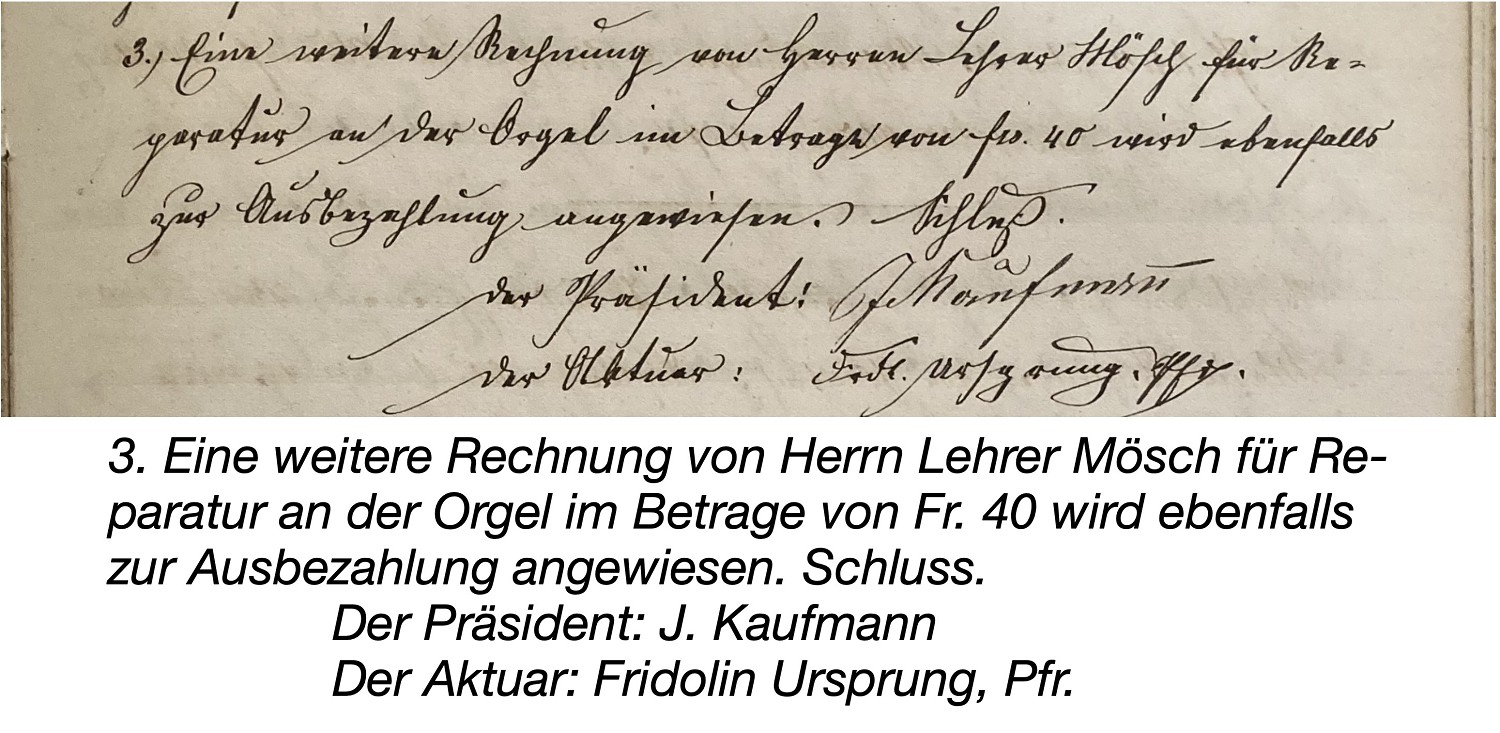 3.) Eine weitere Rechnung von Herren Lehrer Mösch für Re=
paratur an der Orgel im Betrage von frs. 40 wird ebenfalls
zur Ausbezahlung angewiesen. Schluß.
der Präsident: J Kaufmann
der Aktuar: Frdl. Ursprung, Pfr.
3. Eine weitere Rechnung von Herrn Lehrer Mösch für Re-
paratur an der Orgel im Betrage von Fr. 40 wird ebenfalls
zur Ausbezahlung angewiesen. Schluss.
Der Präsident: J. Kaufmann
Der Aktuar: Fridolin Ursprung, Pfr.